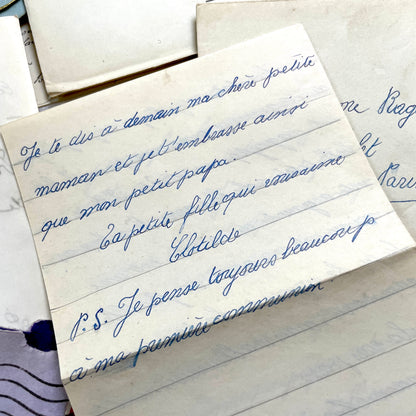 Je te dis à demain ma chère petite
maman et je t'embrasse ainsi
que mon petit papa.
Ta petite fille qui vous aime
Clotilde
P.S. Je pense toujours beaucoup
à ma première communion
me Rag
et
Paris